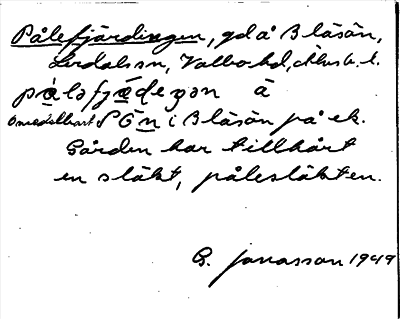 Pålefjärdingen, gd å Blåsön,
Lerdalssn, Valbohd, Älvsb. l.
pålefjædegan å
omedelbart SÖn i Blåsön på ek.
Gården har tillhört
en släkt, pålesläkten.
G. Jonasson 1949